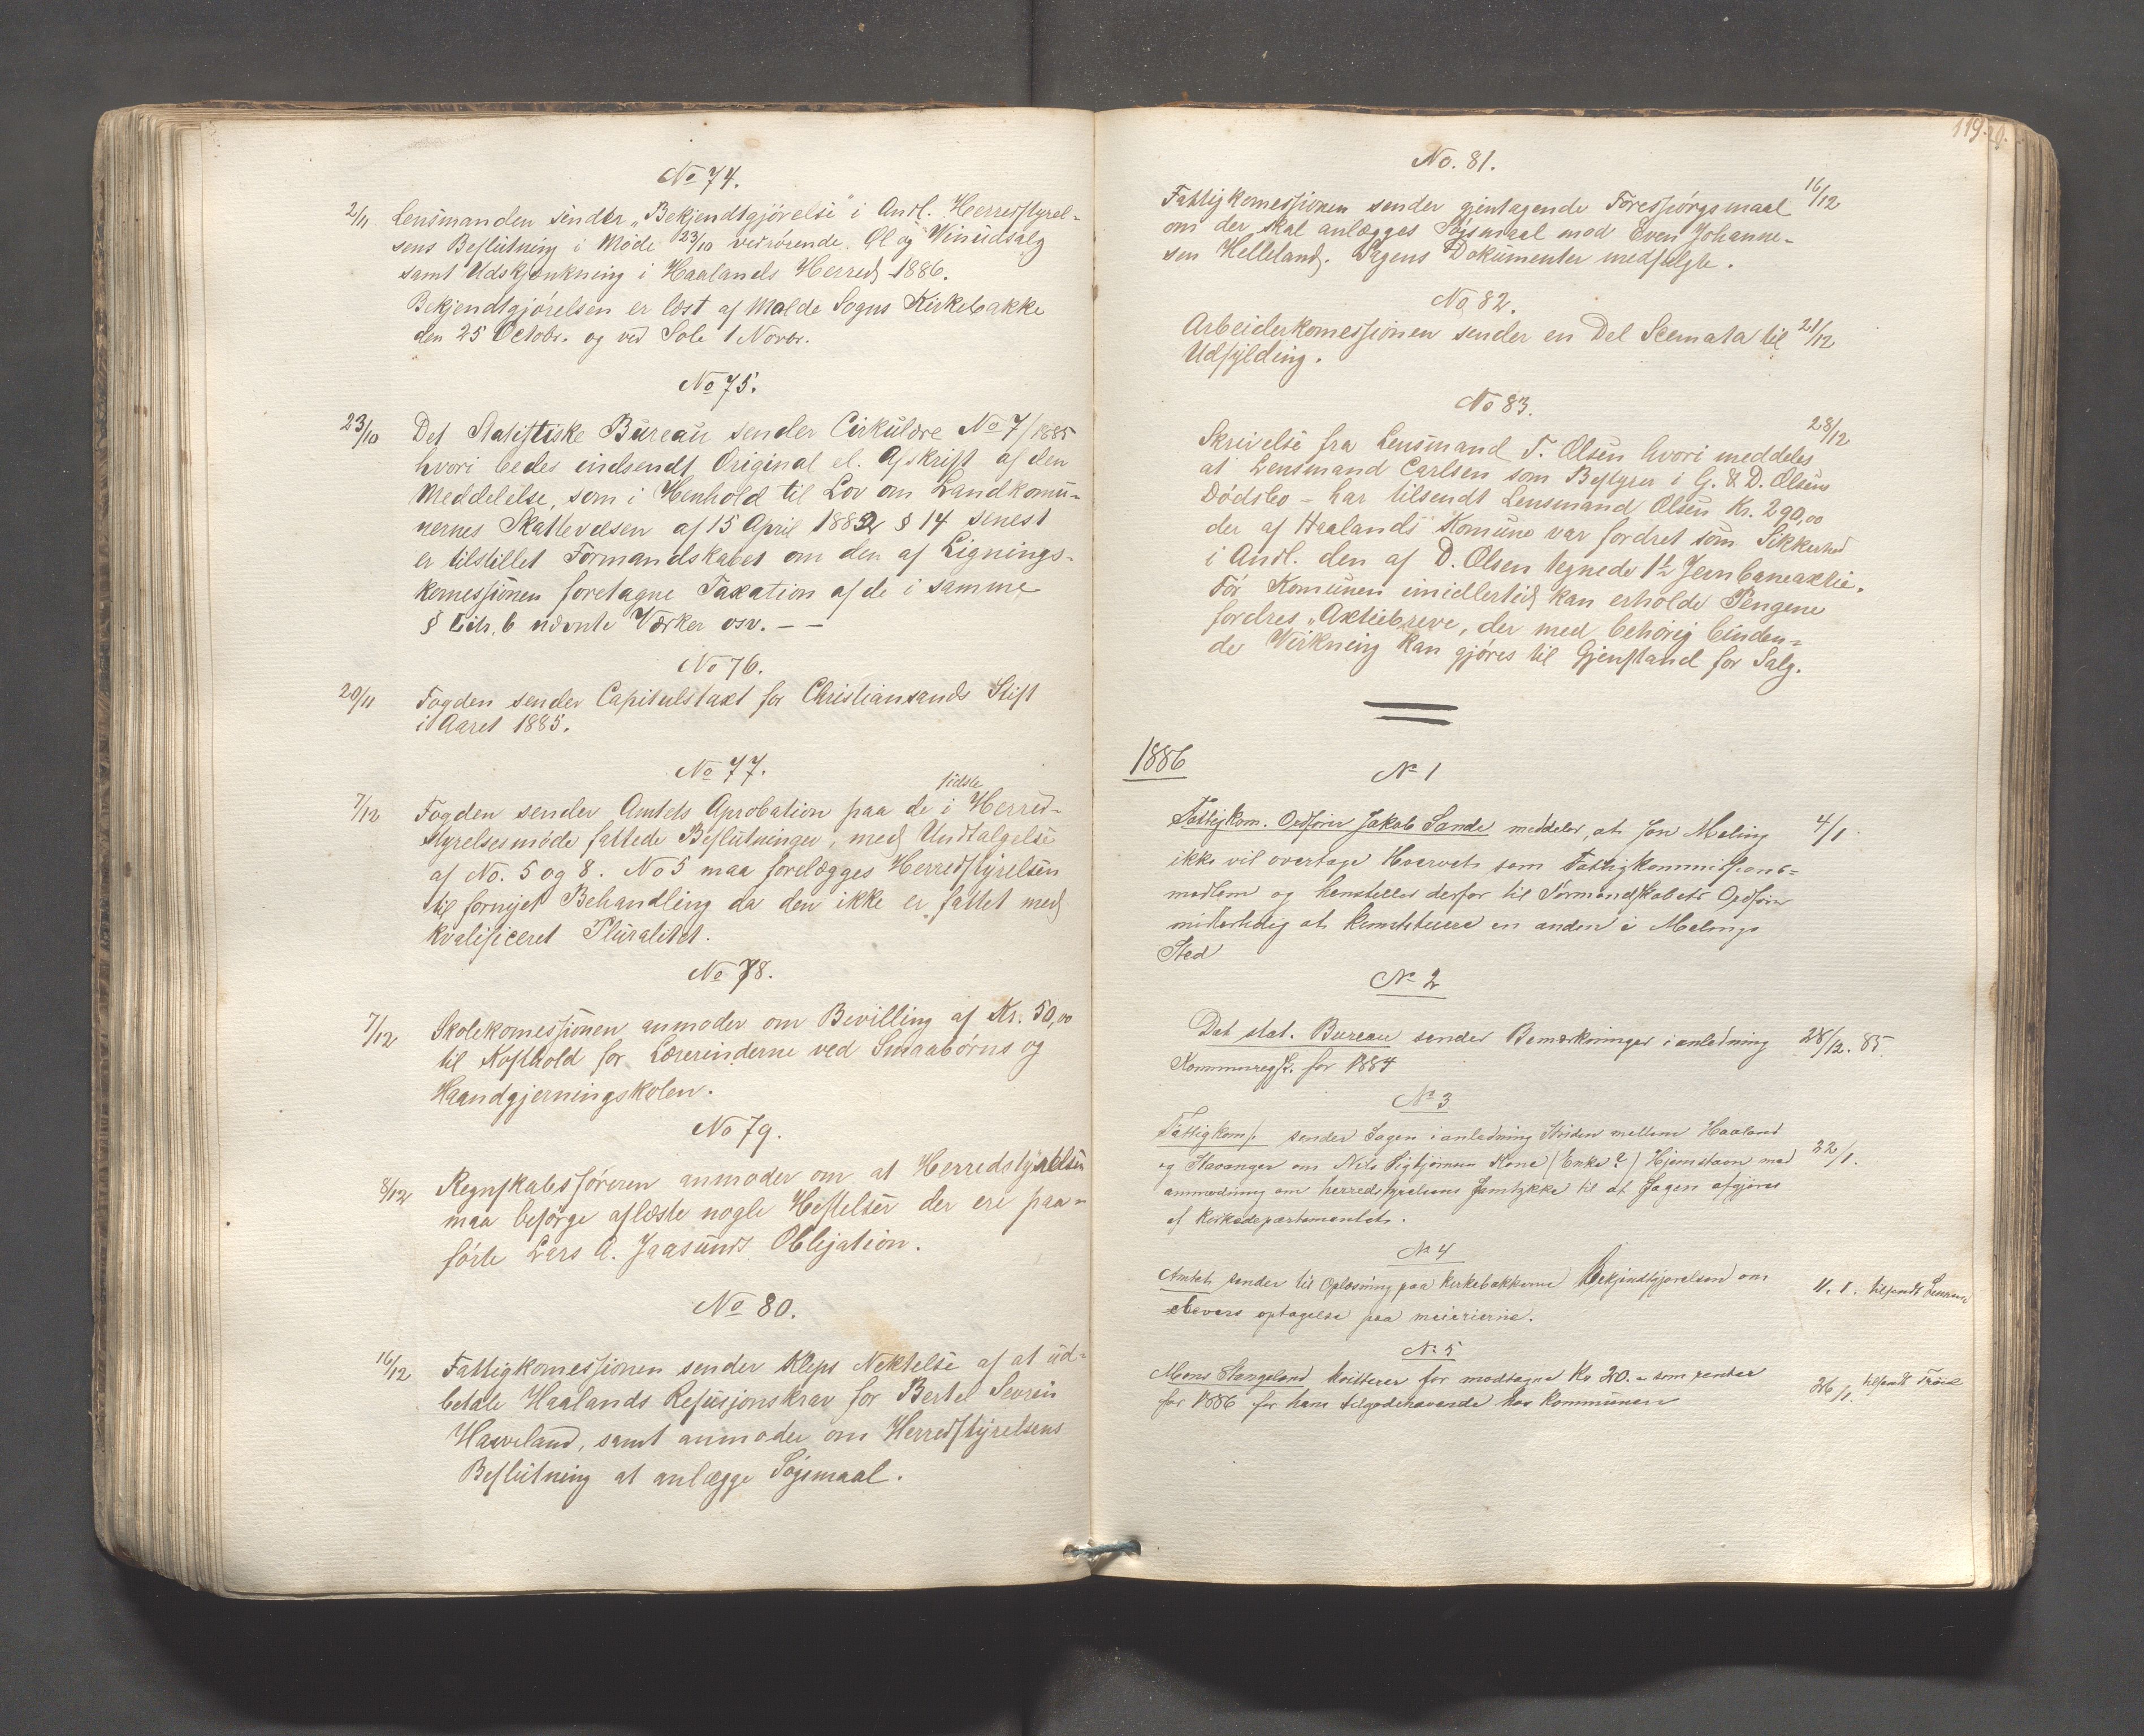 No 74.
2/11 Lensmanden sender „Bekjendtgjörelse" i Anl. Herredstyrel-
sens Beslutning i Møde 23/10 vedrørende Øl og Vinudsalg
samt Udskjænkning i Haalands Herred 1886.
Bekjendtgjørelsen er læst af Malde Sogns Kirkebakke
den 25 Octobr. og ved Sole 1 Novbr.
No 75.
23/10 Det Statistiske Bureau sender Cirkulære No 7/1885
hvori bedes indsendt Original el. Afskrift af den
Meddelelse, som i Henhold til Lov om Landkomu-
nernes Skattevæsen af 15 April 1882 § 14 senest
er tilstillet Formandskabet om den af Lignings-
komessjonen foretagne Taxation af de i samme
§ Litr. b nævnte Værker osv. — —
No 76.
20/11 Fogden sender Capitelstaxt for Christiansands Stift
i Aaret 1885.
No 77.
sidste
7/12 Fogden sender Amtets Aprobation paa de i Herred-
styrelsesmøde fattede Beslutninger, med Undtagelse
af No. 5 og 8. No 5 maa forelægges Herredstyrelsen
til fornyet Behandling da den ikke er fattet med
kvalificeret Pluralitet.
No 78.
7/12 Skolekomessjonen anmoder om Bevilling af Kr. 50,00
til Kosthold for Lærerinderne ved Smaabørns og
Haandgjerningskolen.
No 79.
8/12 Regnskabsføreren anmoder om at Herredstyrelsen
maa besørge aflæste nogle Heftelser der ere paa-
førte Lars A. Jaasunds Obligation.
No 80.
16/12 Fattigkomessjonen sender Kleps Nektelse af at ud-
betale Haalands Refusjonskrav for Bertel Sevrin
Haaveland, samt anmoder om Herredstyrelsens
Beslutning at anlægge Søgsmaal.
119
No. 81.
Fattigkomessjonen sender gjentagende Forespørgsmaal 16/12
om der skal anlægges Søgsmaal mod Even Johanne-
sen Helleland. Sagens Dokumenter medfulgte.
No 82.
Arbeiderkomessjonen sender en Del Scemata til 21/12
Udfylding.
No 83.
28/12
Skrivelse fra Lensmand T. Olsen hvori meddeles
at Lensmand Carlsen som Bestyrer i G. & D. Olsens
Dödsbo – har tilsendt Lensmand Olsen Kr. 290,00
der af Haalands Komune var fordret som Sikkerhed
i Anl. den af D. Olsen tegnede 1½ Jernbaneaktie.
Før Komunen imidlertid kan erholde Pengene
fordres „Aktiebreve, der med behørig binden-
de Virkning kan gjøres til Gjenstand for Salg.
1886
No 1
Fattigkom. Ordfører Jakob Sande meddeler, at Jon Meling 4/1.
ikke vil overtage Hvervet som Fattigkommissions-
medlem og henstiller derfor til Formandskabets Ordfører
midlertidig at konstituere en anden i Melings
Sted
No 2
Det stat. Bureau sender Bemærkninger i anledning 28/12. 85.
for 1884
No 3
Fattigkoms. sender Sagen i anledning Striden mellem Haaland
og Stavanger om Nils Sigbjørnsens Kone (Enke?) Hjemstavn med 22/1.
anmodning om herredstyrelsens Samtykke til at Sagen afgjøres
af Kirkedepartementet.
No 4
Amtet sender til Oplæsning paa kirkebakkerne bekjendtgjørelsen om 11. 1. tilsendt Lensman
elevers optagelse paa meierierne.
No 5
Mons Stangeland kvitterer for modtagne Kr 20.- som renter 26/1. tilsendt
for 1886 for hans tilgodehavende hos kommunen